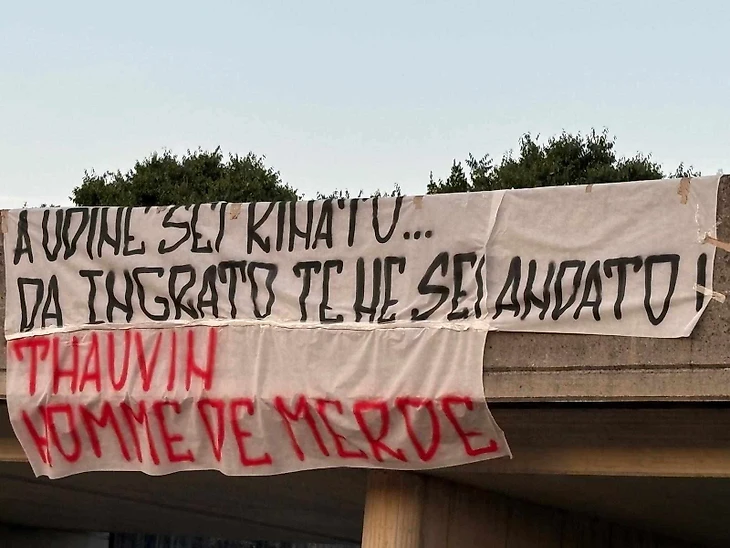 A UDINE SEI RINATO...
DA INGRATO TE NE SEI ANDATO !
THAUVIN
HOMME DE MERDE